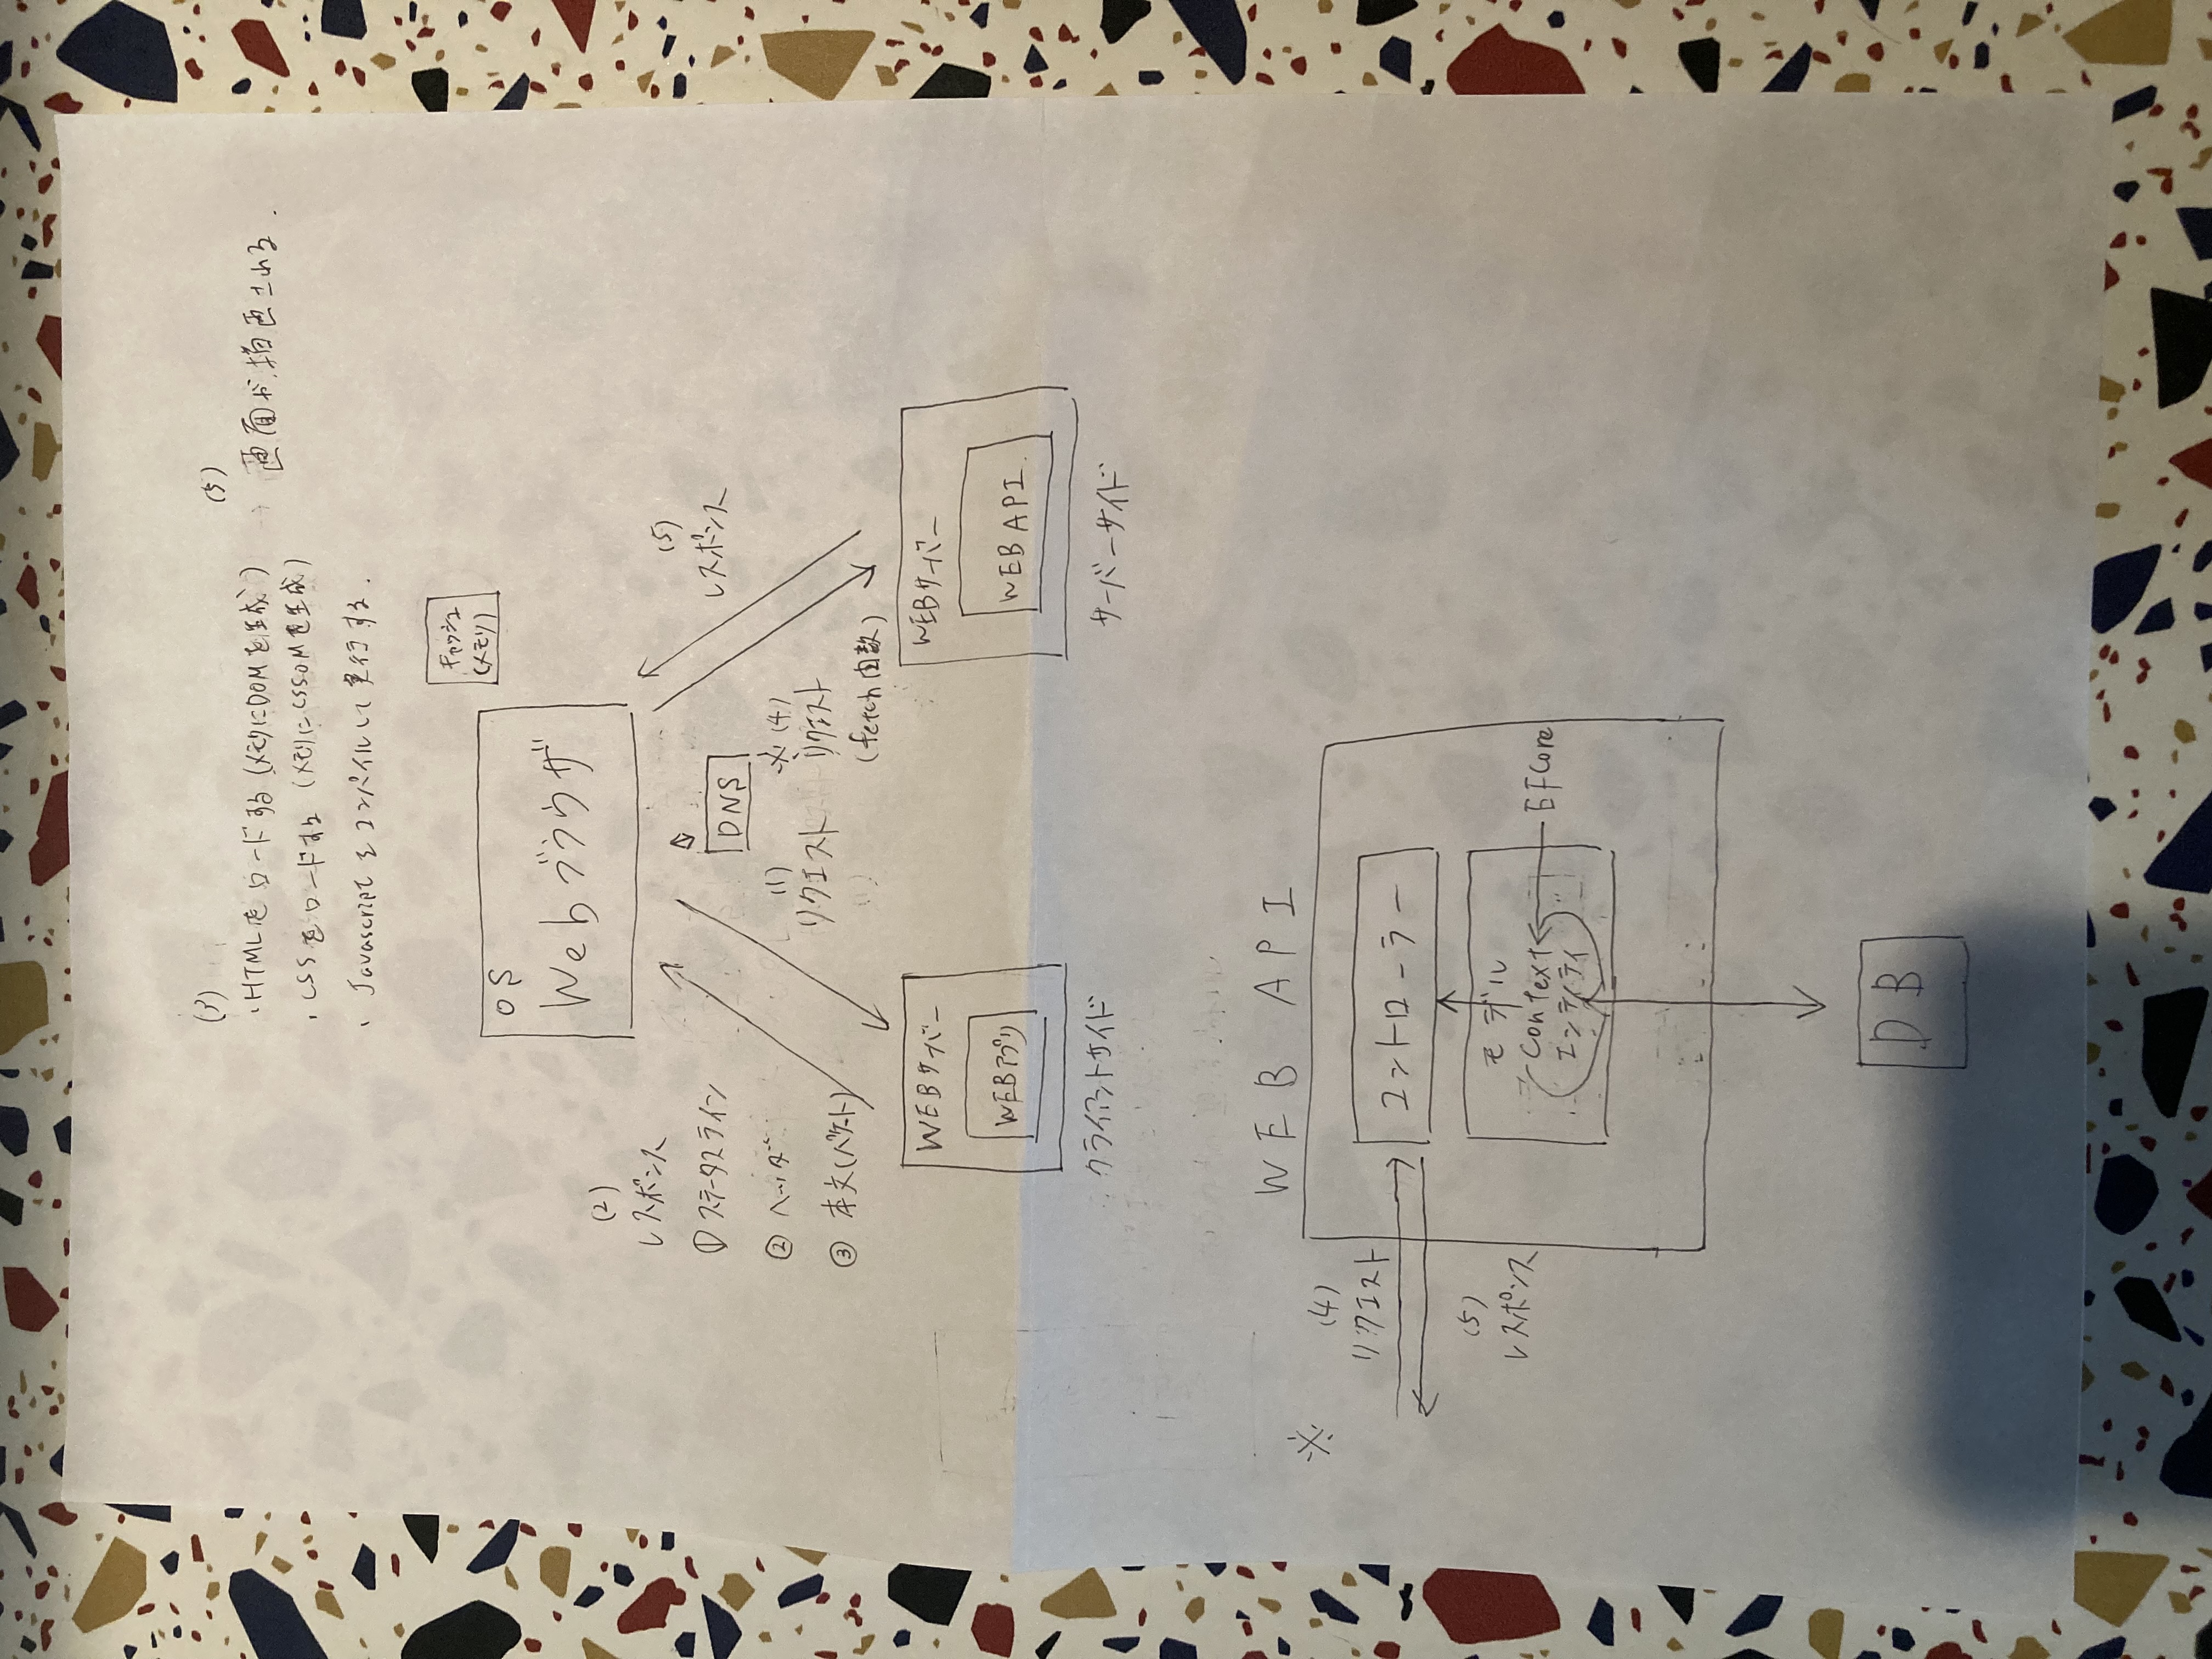 (3)
・HTMLをロードする(メモリにDOMを生成)
・CSSをロードする(メモリにCSSOMを生成)
・Javascriptをコンパイルして実行する.
(5)
画面が描画される.
キャッシュ
(メモリ)
OS
Webブラウザ
(2)
レスポンス
① ステータスライン
② ヘッダ
③ 本文(パケット)
DNS
(1)
リクエスト
※(4)
リクエスト
(fetch関数)
(5)
レスポンス
WEBサーバー
WEBアプリ
クライアントサイド
WEBサーバー
WEB API.
サーバーサイド
WEB API
※
(4)
リクエスト
(5)
レスポンス
コントローラー
モデル
Context
エンティティ
EFCore
DB